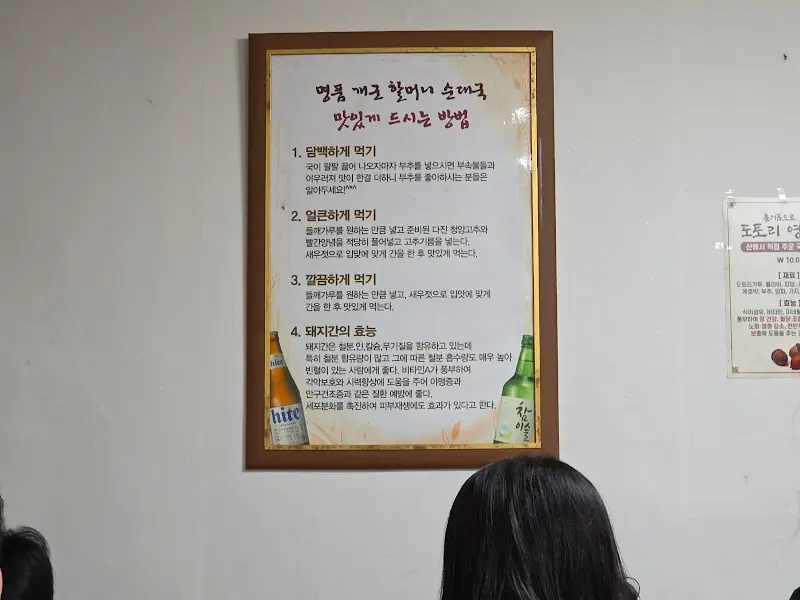 명품 개군 할머니 순대국
맛있게 드시는 방법
1. 담백하게 먹기
국이 팔팔 끓어 나오자마자 부추를 넣으시면 부속물들과
어우러져 맛이 한결 더하니 부추를 좋아하시는 분들은
알아두세요!^*^
2. 얼큰하게 먹기
들깨가루를 원하는 만큼 넣고 준비된 다진 청양고추와
빨간양념을 적당히 풀어넣고 고추기름을 넣는다.
새우젓으로 입맛에 맞게 간을 한 후 맛있게 먹는다.
3. 깔끔하게 먹기
들깨가루를 원하는 만큼 넣고, 새우젓으로 입맛에 맞게
간을 한 후 맛있게 먹는다.
4. 돼지간의 효능
돼지간은 철분,인,칼슘,무기질을 함유하고 있는데
특히 철분 함유량이 많고 그에 따른 철분 흡수량도 매우 높아
빈혈이 있는 사람에게 좋다. 비타민A가 풍부하여
각막보호와 시력향상에 도움을 주어 야맹증과
안구건조증과 같은 질환 예방에 좋다.
세포분화를 촉진하여 피부재생에도 효과가 있다고 한다.
hite
hite
참
이슬
들기름으로
도토리
산에서 직접 주운
₩ 10,0
[ 재료 ]
도토리가루, 콜라비, 피망,
애호박, 부추, 양파, 가지,
[ 효능 ]
식이섬유, 비타민, 미네
풍부하여 장 건강, 혈당 조
노화·염증 감소, 전반
보호에 도움을 주는